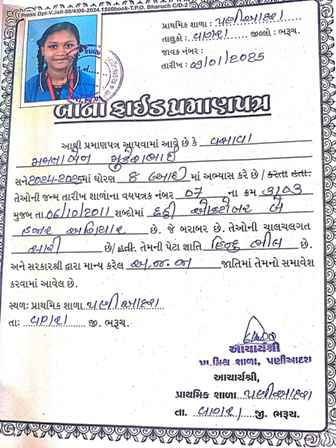 પ્રાથમિક શાળા : પણીઆદરા
તાલુકો: વાગરા જીલ્લો : ભરૂચ.
જાવક નંબર :
તારીખ : 09/01/2025
બોનોફાઈડ પ્રમાણપત્ર
આથી પ્રમાણપત્ર આપવામાં આવે છે કે વસાવા
મુકેશભાઈ
સને 2024-2025માં ધોરણ 8 માં અભ્યાસ કરે છે / કરતા હતા.
તેઓની જન્મ તારીખ શાળાના વયપત્રક નંબર 07 ના ક્રમ 3103
મુજબ તા 06/10/2011 શબ્દોમાં છઠ્ઠી ઓક્ટોબર બે
હજાર અગિયાર છે. જે બરાબર છે. તેઓની ચાલચલગત
સારી છે/ હતી. તેમની પેટા જ્ઞાતિ હિન્દુ ભીલ છે.
અને સરકારશ્રી દ્વારા માન્ય કરેલ અ.જ.જા જાતિમાં તેમનો સમાવેશ
કરવામાં આવેલ છે.
સ્થળ: પ્રાથમિક શાળા પણીઆદરા
તા: વાગરા જી. ભરૂચ.
આચાર્યશ્રી
પ્રા.મિશ્ર શાળા, પણીઆદરા
આચાર્યશ્રી,
પ્રાથમિક શાળા પણીઆદરા
તા. વાગરા જી. ભરૂચ.